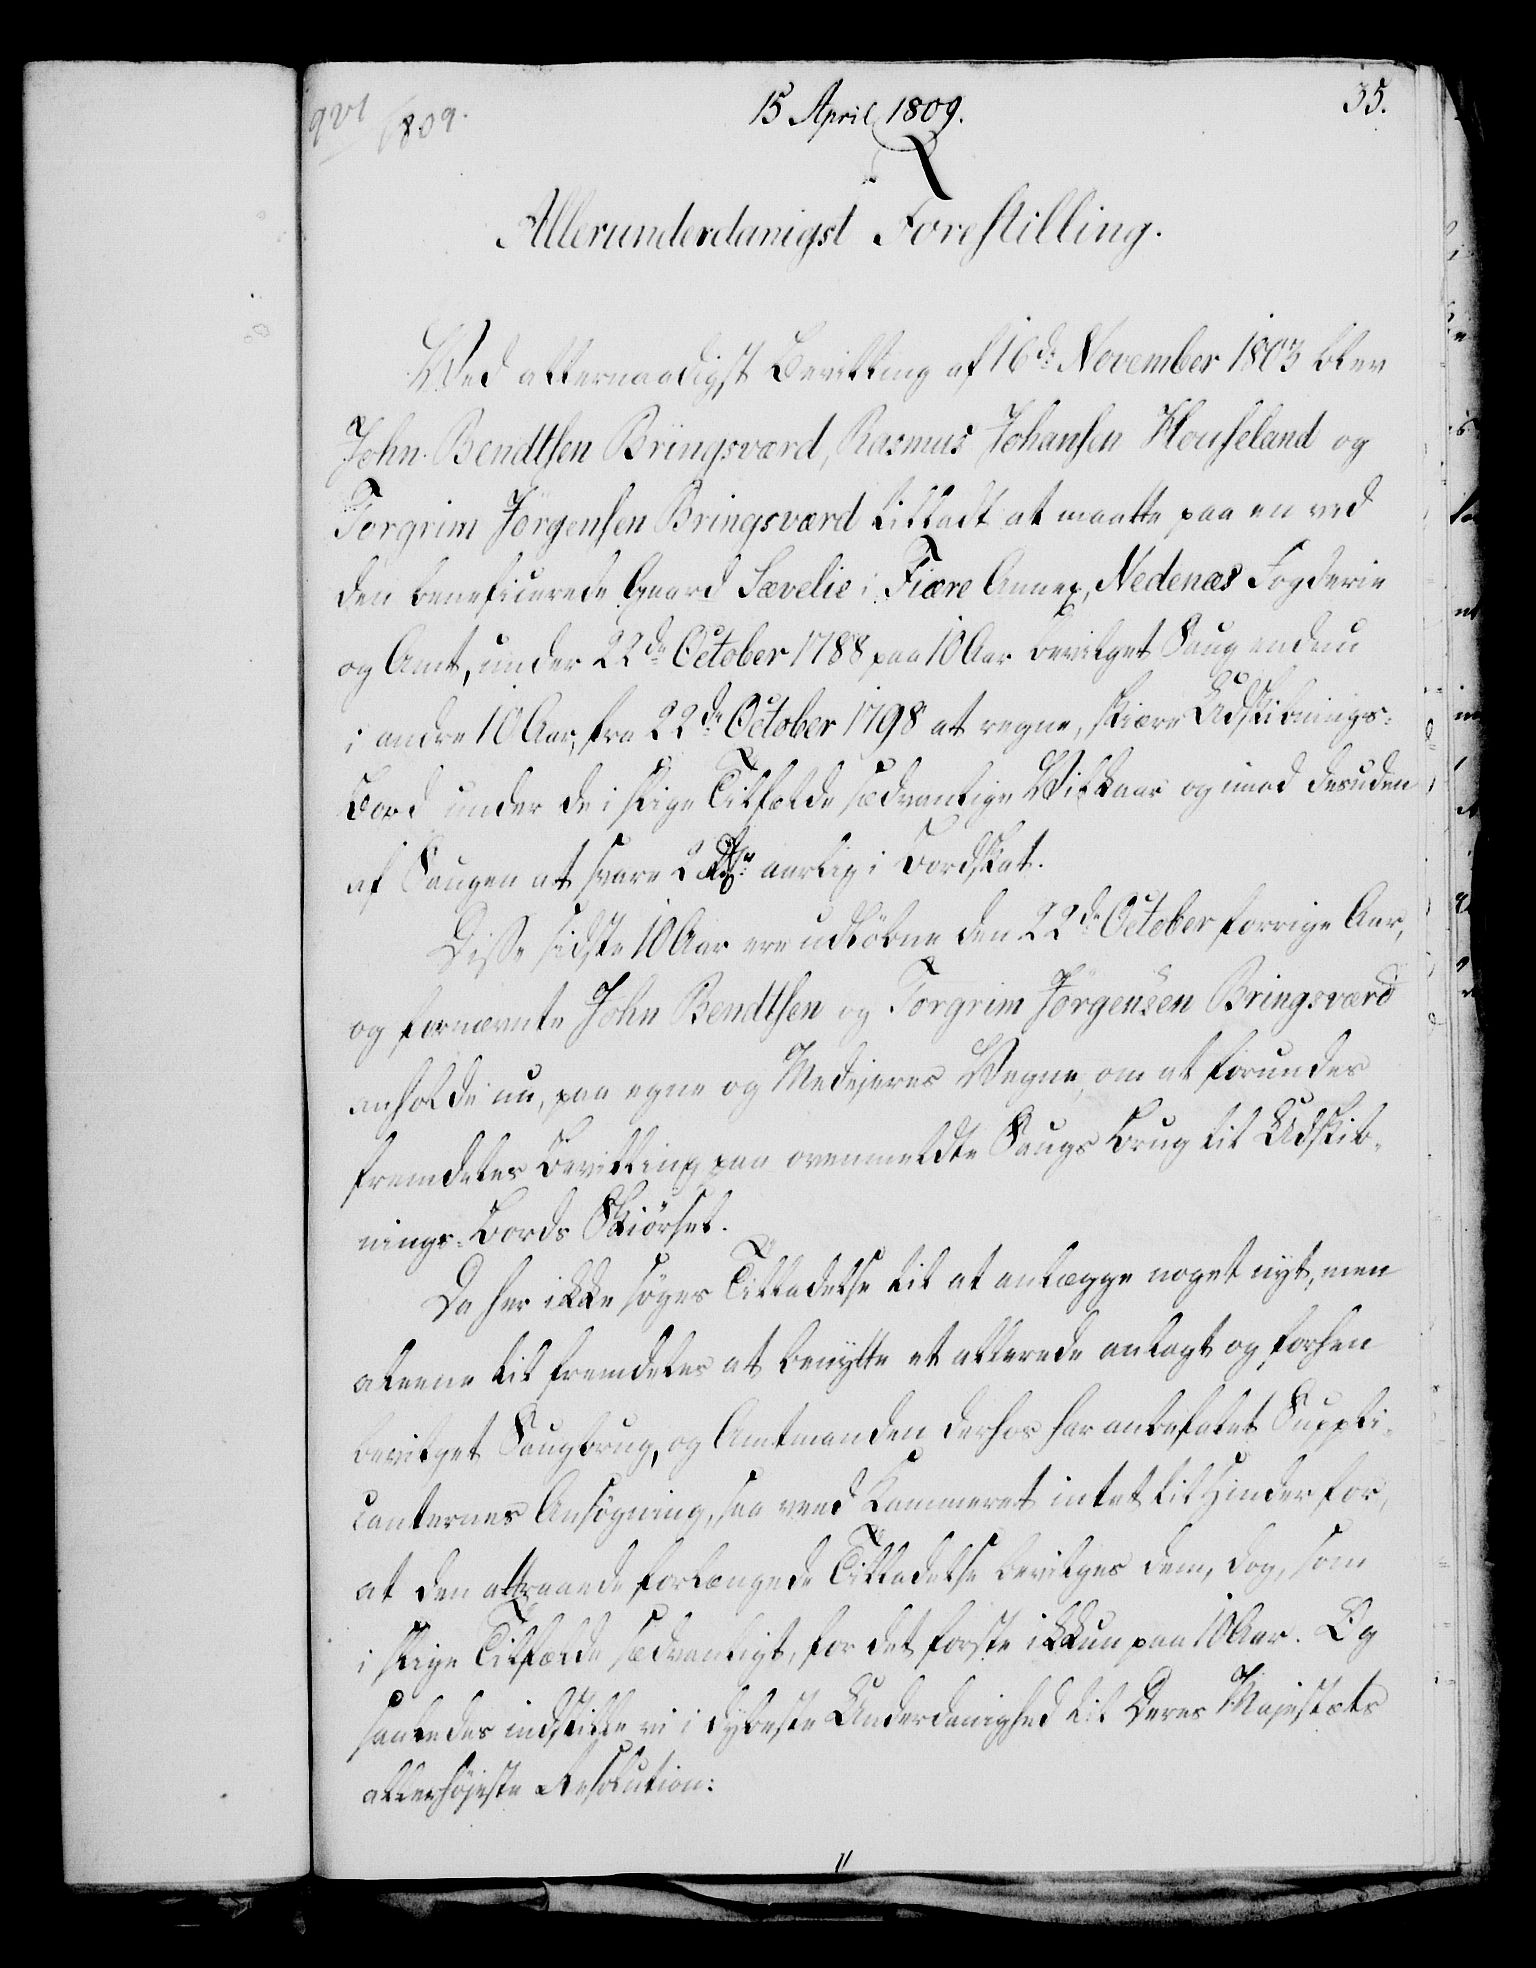 921
1809.
15 April 1809.
35.
Allerunderdanigst Forestilling.
Ved allernaadigst Bevilling af 16de November 1803 blev
John Bendtsen Bringsværd, Rasmus Johansen Houseland og
Torgrim Jörgensen Bringsværd tilladt at maatte paa en ved
den beneficerede Gaard Sævelie i Fiære Annex, Nedenæs Fogderie
og Amt, under 22de October 1788 paa 10 Aar bevilget Saug endnu
i andre 10 Aar, fra 22de October 1798 at regne, skiære Udskibnings-
Bord under de i slige Tilfælde sædvanlige Vilkaar og imod desuden
af Saugen at svare 2 Rdr aarlig i Bordskat.
Disse sidste 10 Aar ere udløbne den 22de October forrige Aar,
og fornævnte John Bendtsen og Torgrim Jörgensen Bringsværd
anholde nu, paa egne og Medejeres Vegne, om at forundes
fremdeles Bevilling paa ovenmeldte Saugs Brug til Udskib-
nings-Bords Skiørsel.
Da her ikke søges Tilladelse til at anlægge noget nyt, men
aleene til fremdeles at benytte et allerede anlagt og forhen
bevilget Saugbrug, og Amtmanden derhos har anbefalet Suppli-
canternes Ansøgning, saa veed Kammeret intet til Hinder for,
at den attraaede forlængede Tilladelse bevilges dem, dog, som
i slige Tilfælde sædvanligt, for det første ikkun paa 10 Aar. Og
saaledes indstille vi i dybeste Underdanighed til Deres Majestæts
allerhøjeste Resolution: